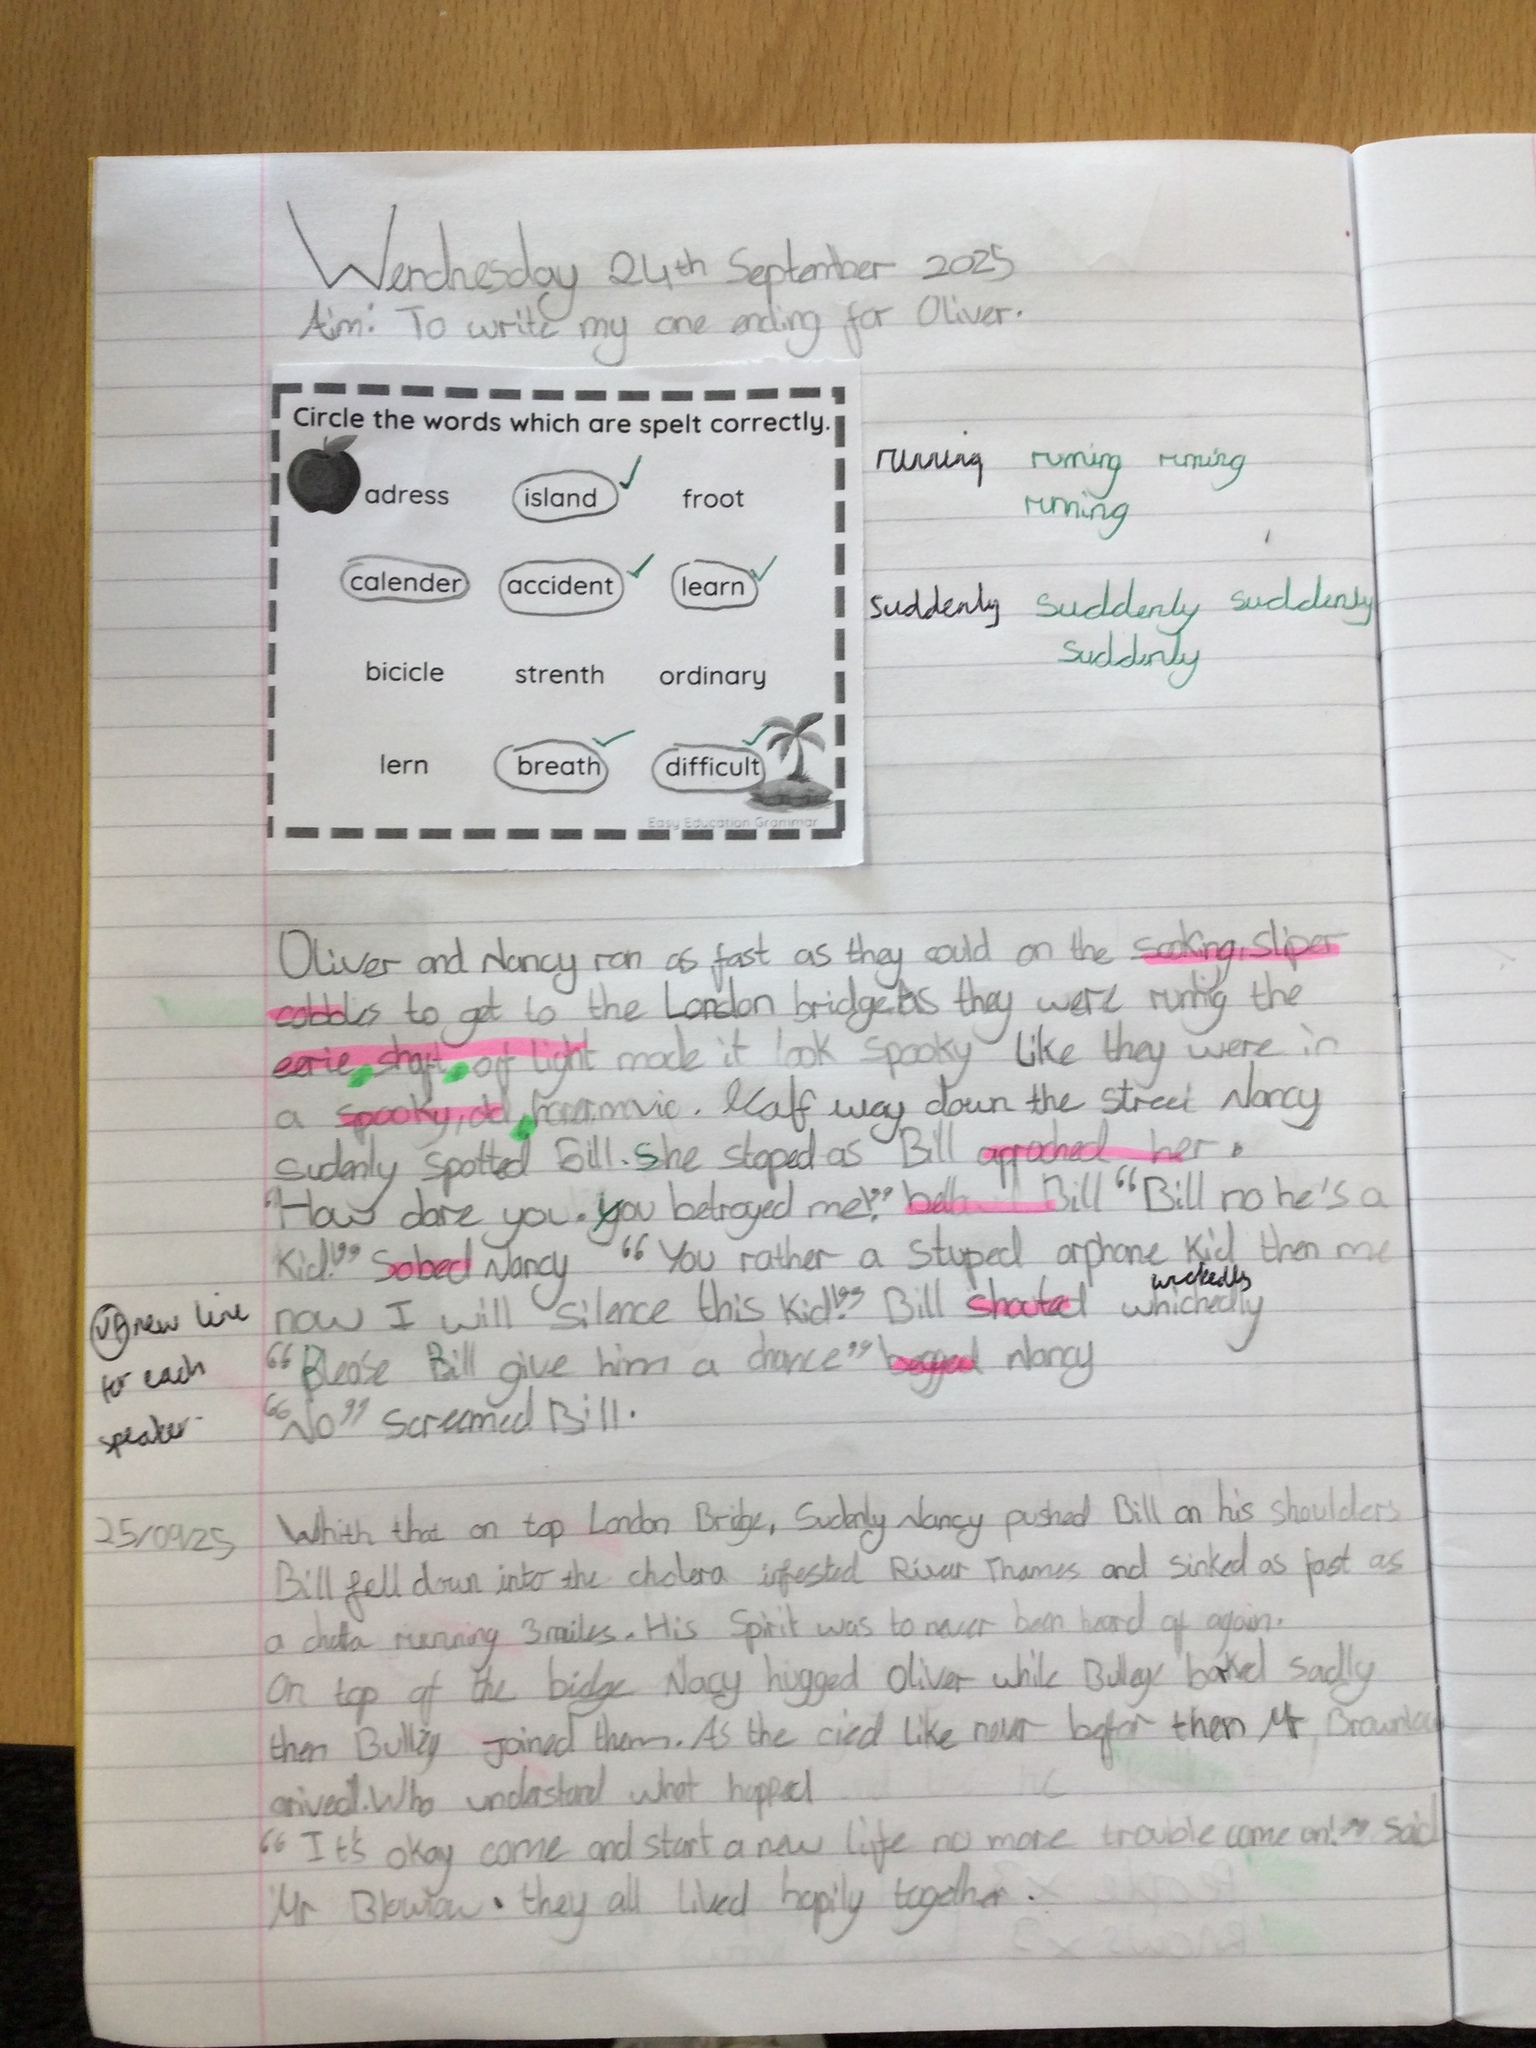 Wendnesday 24th September 2025
Aim: To write my one ending for Oliver.
Circle the words which are spelt correctly.
adress island froot
calender accident learn
bicicle strenth ordinary
lern breath difficult
Easy Education Grammar
running running running
running
suddenly suddenly suddenly
suddenly
Oliver and Nancy ran as fast as they could on the sooking, sliper
cobbles to get to the London bridge. As they were runtig the
eerie, shaft, off light made it look spooky like they were in
a spooky, old, movie. Half way down the street Nancy
sudenly spotted Bill. She stoped as Bill aproched her.
"How dare you. you betrayed me!" Bill "Bill no he's a
Kid!" Sobed Nancy "You rather a Stuped orphone Kid then me
wickedly
now I will silence this Kid!" Bill shouted whichedly
VB new line
for each
speaker.
"Please Bill give him a chance" begged Nancy
"No" screamed Bill.
25/09/25
Whith that on top London Bridge, Sudenly Nancy pushed Bill on his shoulders
Bill fell down into the cholera infested River Thames and sinked as fast as
a cheta running 3miles. His Spirit was to never been heard of again.
On top of the bidge Nacy hugged Oliver while Bullsye barked sadly
then joined them. As the cied like never befor then Mr Brownlow
arived. Who understand what happed
"It's okay come and start a new life no more trouble come on!" said
Mr they all lived hapily together.